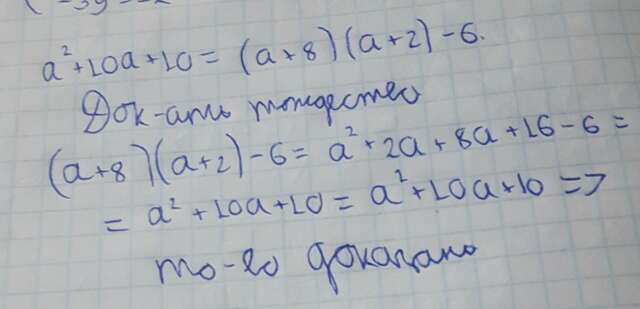 a²+10a+10 = (a+8)(a+2)-6.
Док-ать тождество
(a+8)(a+2)-6 = a²+2a+8a+16-6 =
= a²+10a+10 = a²+10a+10 =>
то-во доказано